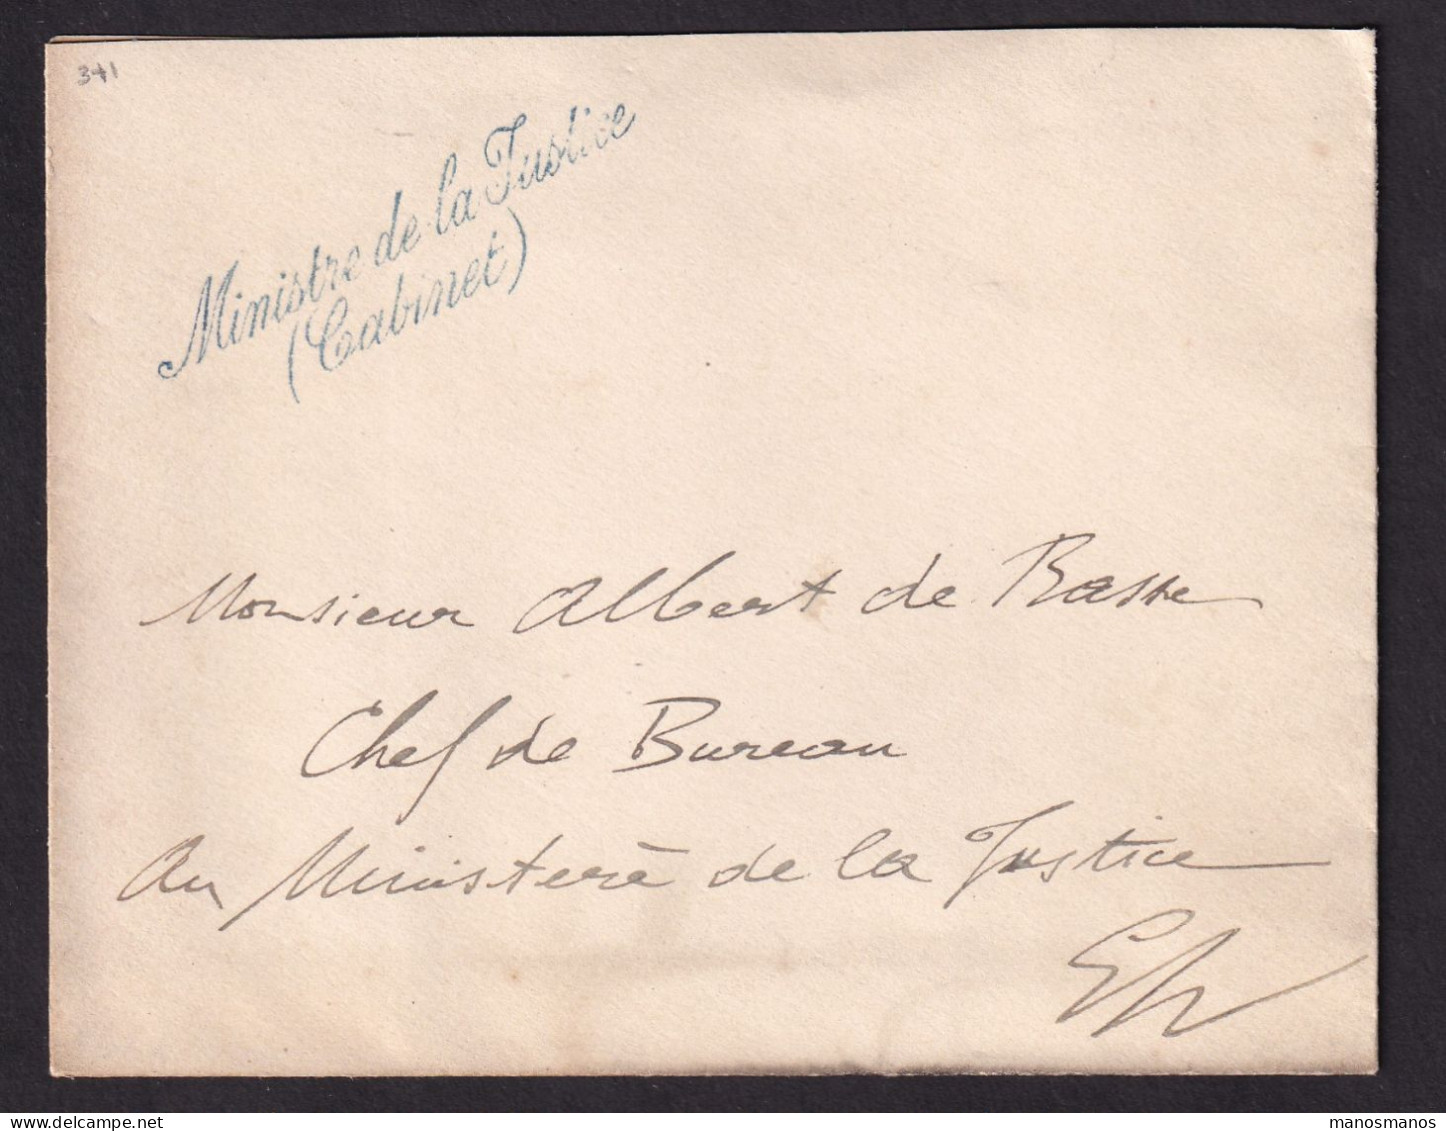 341
Ministre de la Justice
(Cabinet)
Monsieur Albert de Basse
Chef de Bureau
Au Ministère de la Justice
manosmanos.com